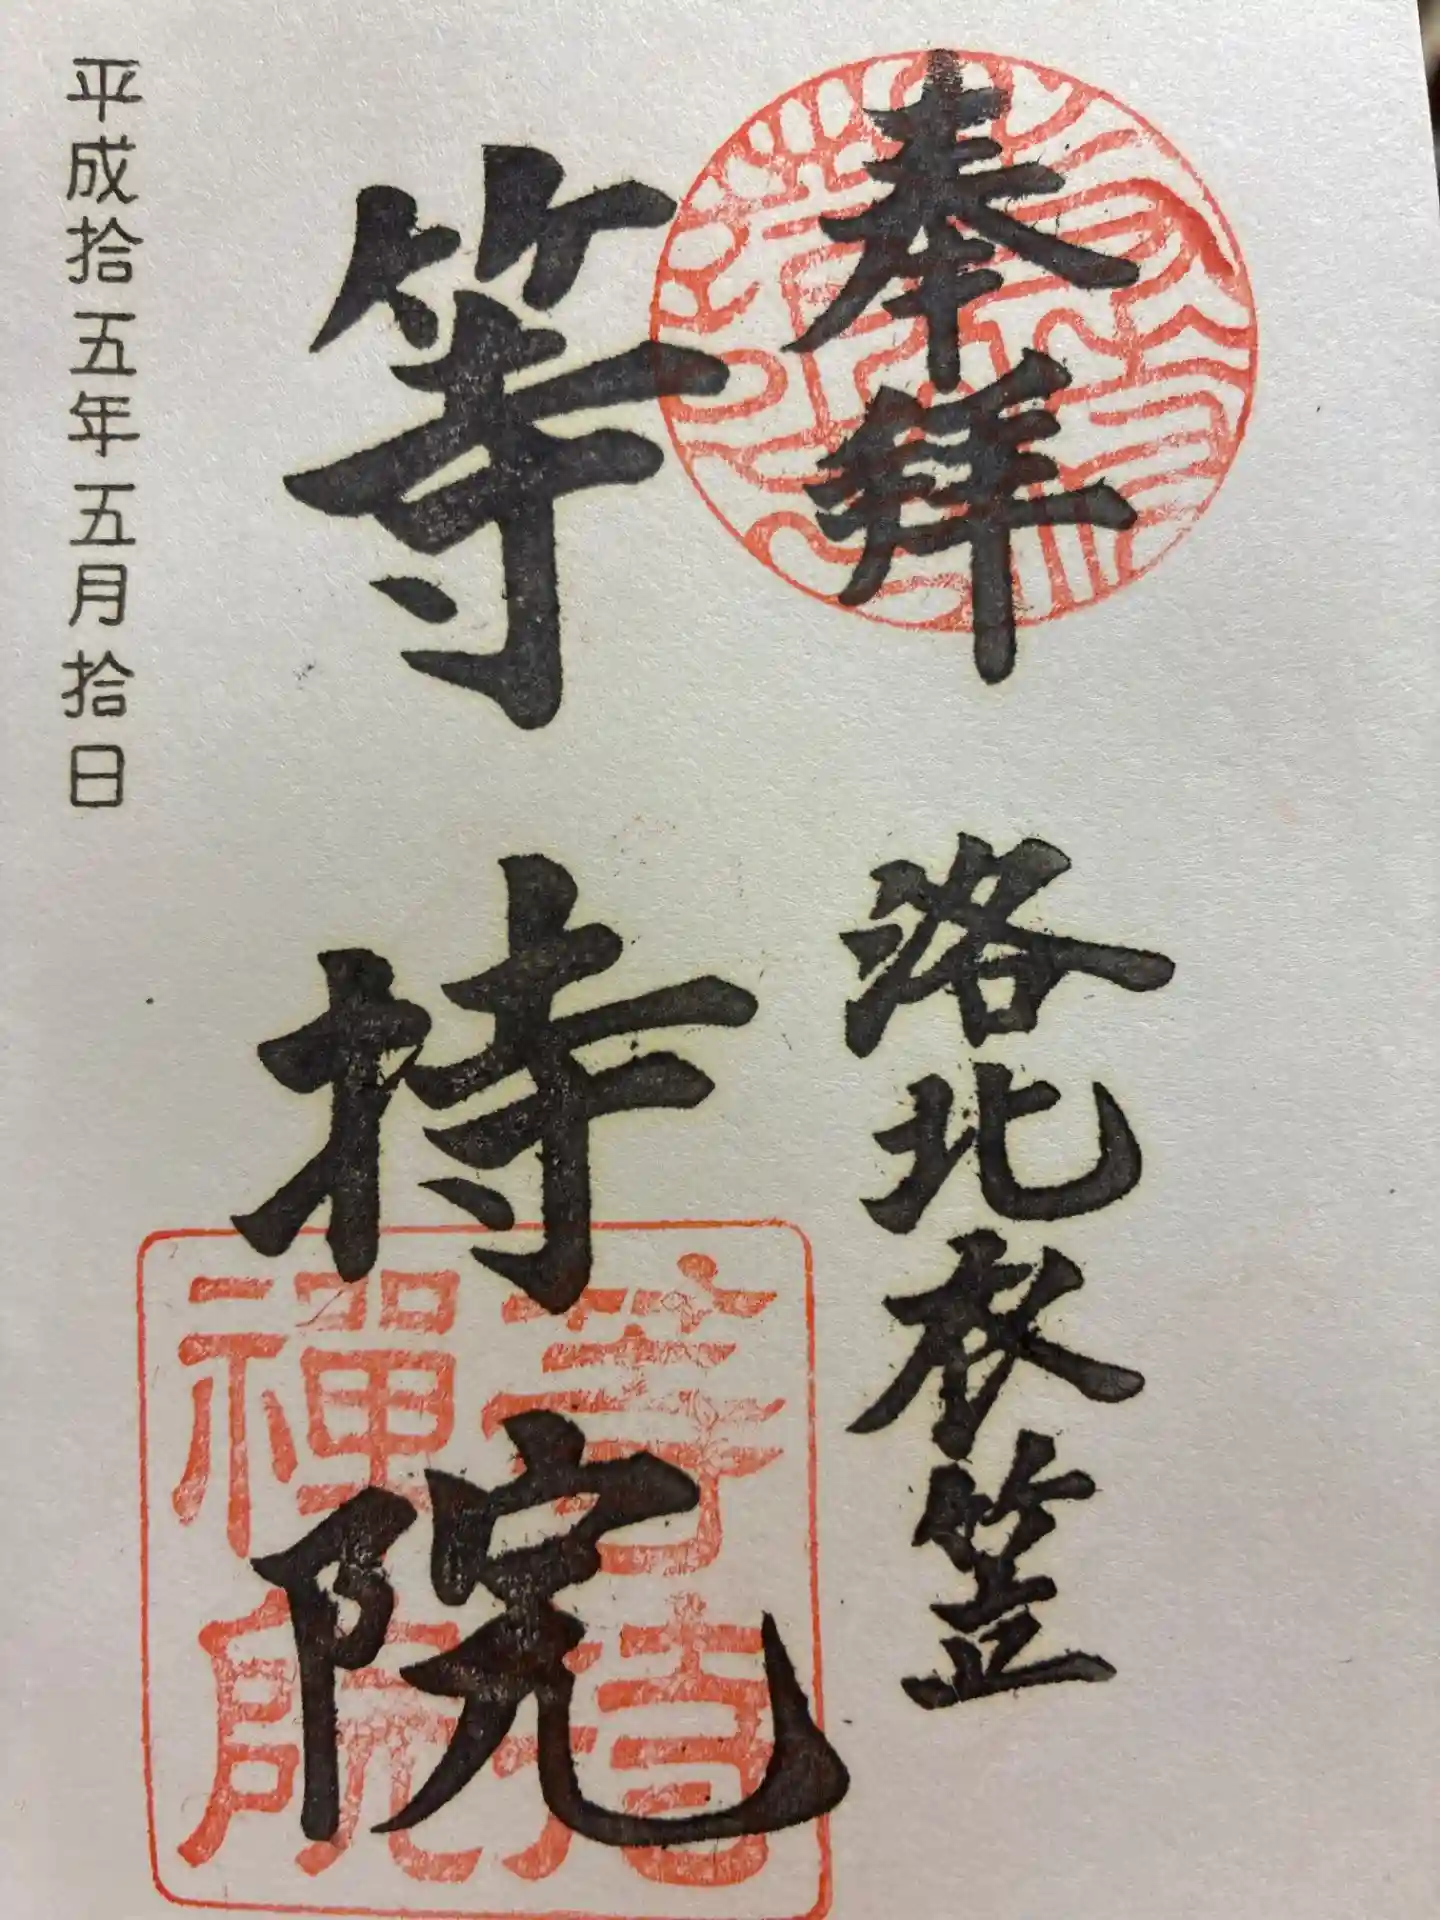 奉拜
洛北衣笠
等持院
平成拾五年五月拾日
等持
禅院